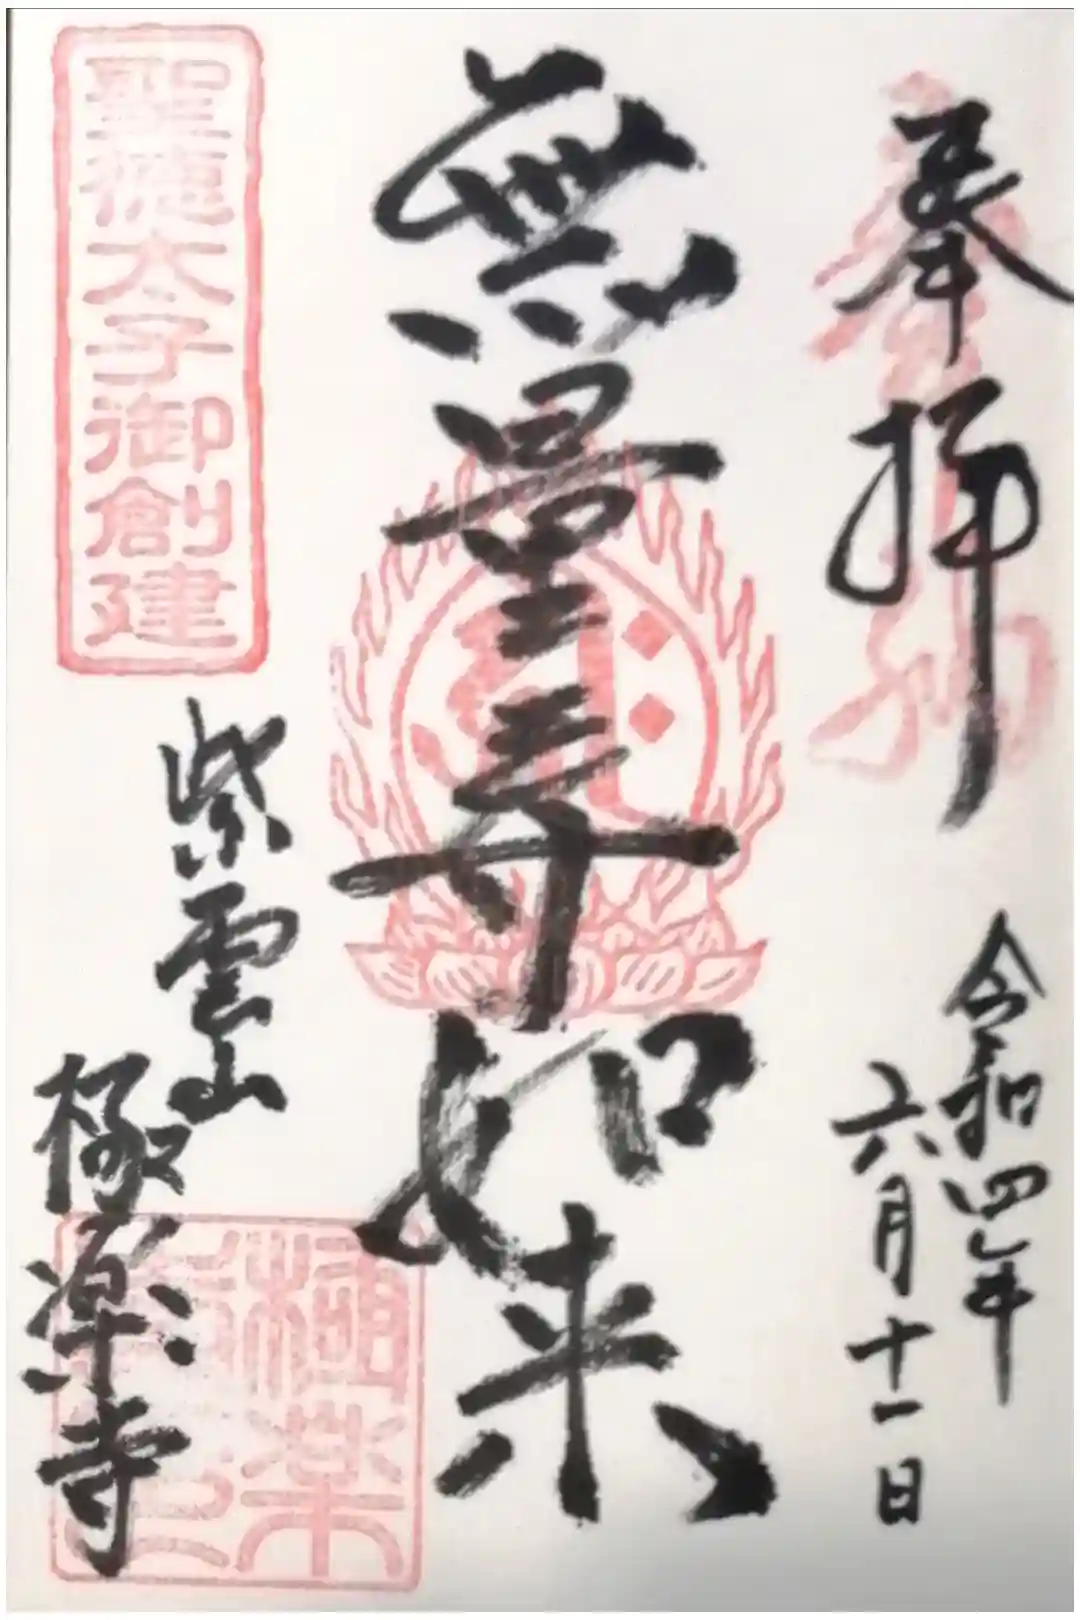 奉拝
令和四年
六月十一日
無量寿如来
聖徳太子御創建
紫雲山
極楽寺
極楽